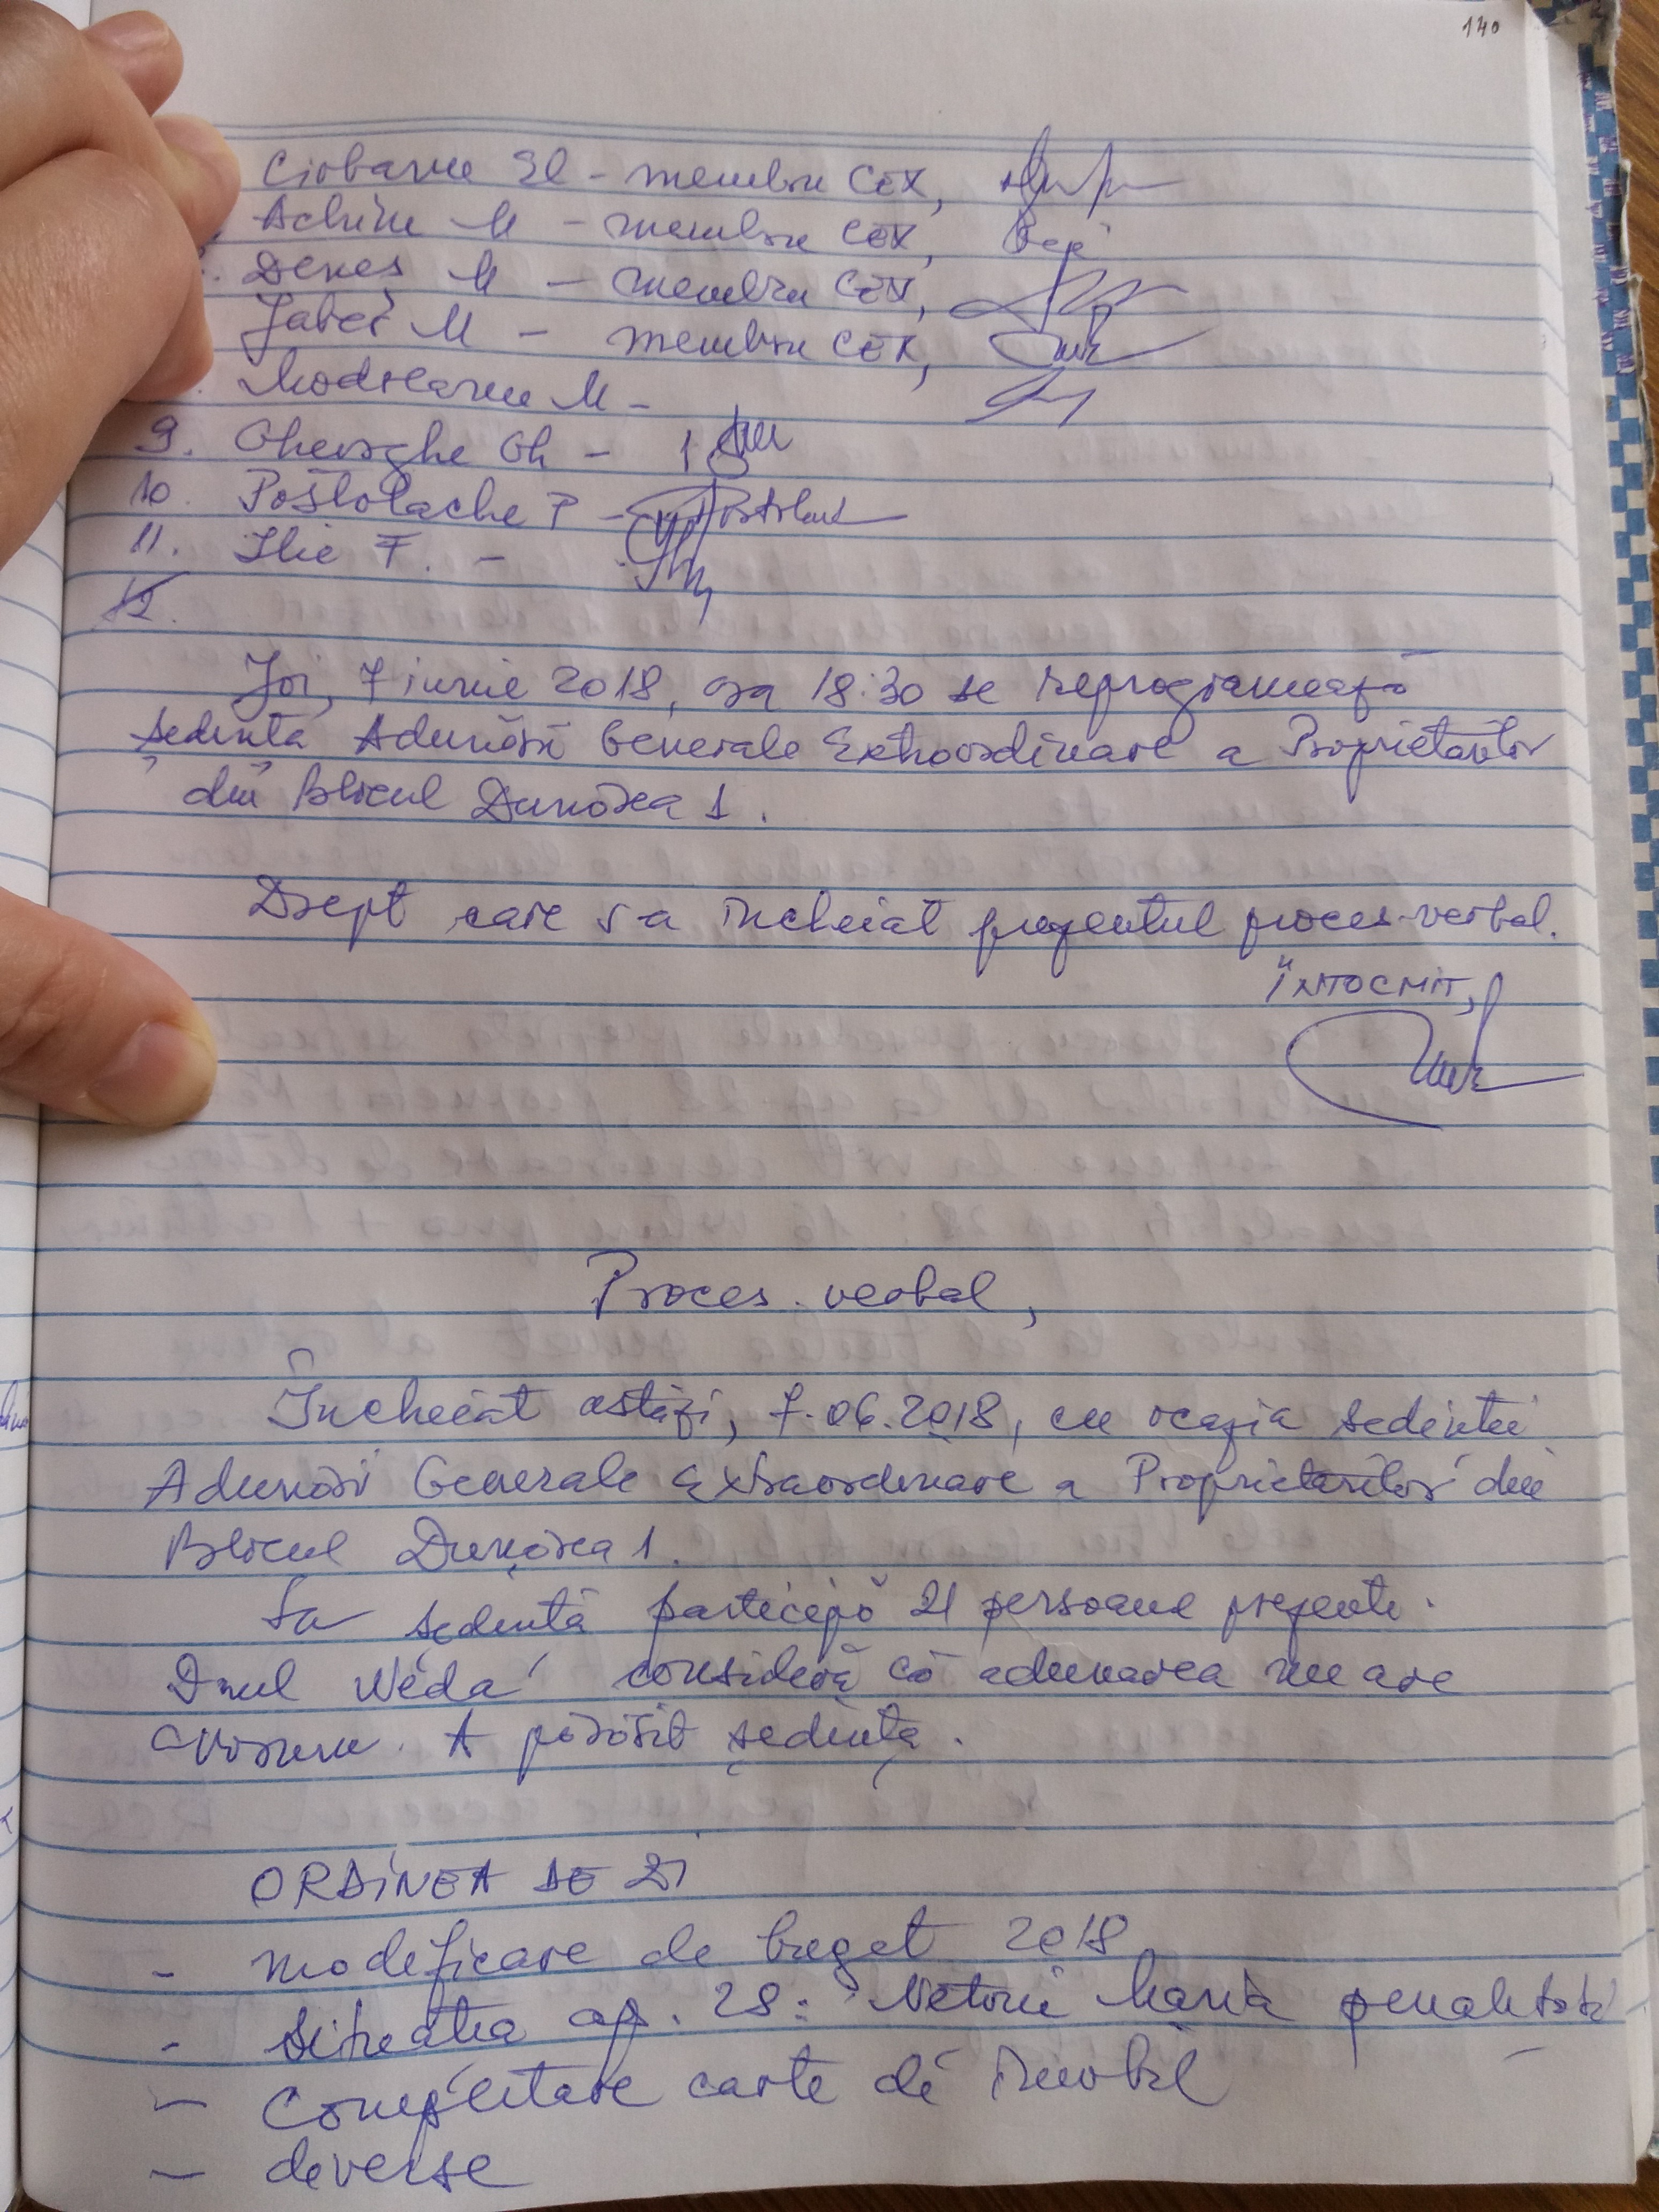 140
Ciobanu Il - membru CEX,
Achim M - membru CEX,
Denes M - membru CEX,
M - membru CEX,
Modreanu M -
9. Gheorghe Gh -
10. Postolache P -
11. Ilie F. -
12.
Joi, 7 iunie 2018, ora 18:30 se reprogramează
ședința Adunării Generale Extraordinare a Proprietarilor
din Blocul Dunărea 1.
Drept care s-a încheiat prezentul proces-verbal.
ÎNTOCMIT,
Proces-verbal,
Încheiat astăzi, 7.06.2018, cu ocazia ședinței
Adunării Generale Extraordinare a Proprietarilor din
Blocul Dunărea 1.
La ședință participă 21 persoane prezente.
Dnul Neda consideră că adunarea nu are
cvorum. A părăsit ședința.
ORDINEA DE ZI
- modificare de buget 2018
- situația ap. 28: Netoiu Maria penalități
- Completare carte de imobil
- diverse